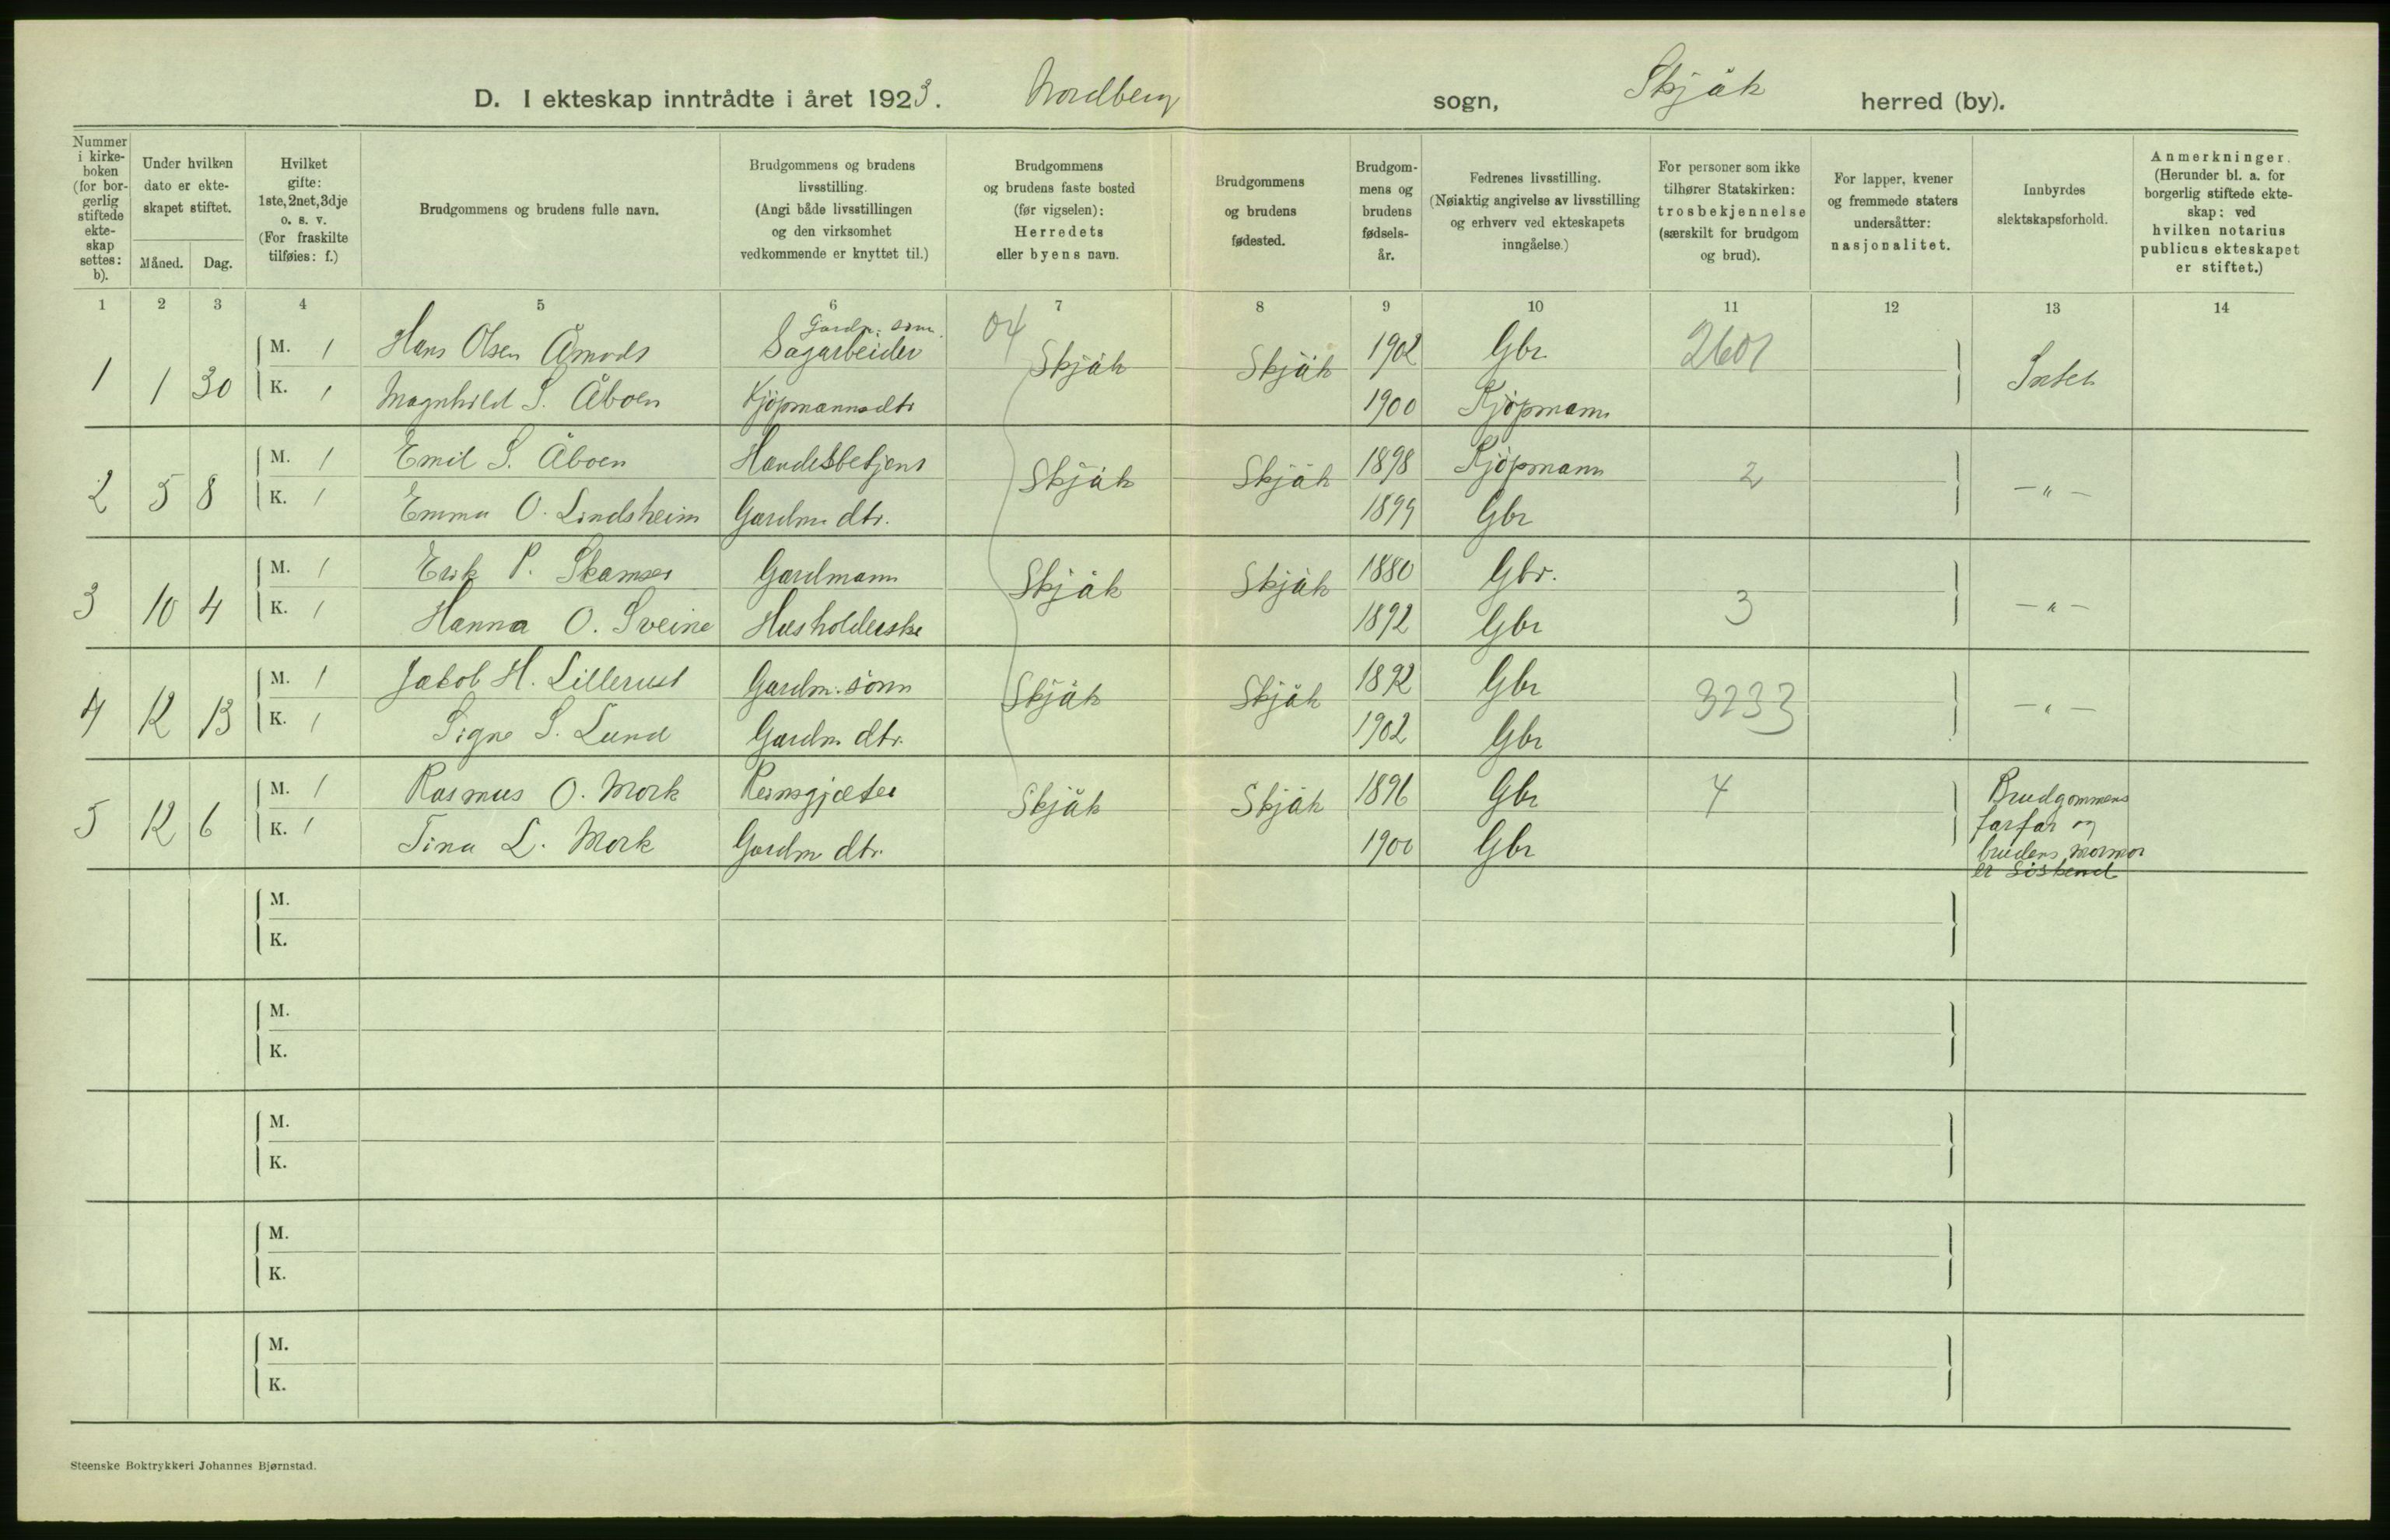 D. I ekteskap inntrådte i året 1923. Nordberg sogn, Skjåk herred (by).
Nummer i kirkeboken (for borgerlig stiftede ekteskap settes: b).
Under hvilken dato er ekteskapet stiftet.
Måned. Dag.
Hvilket gifte: 1ste, 2net, 3dje o. s. v. (For fraskilte tilføies: f.)
Brudgommens og brudens fulle navn.
Brudgommens og brudens livsstilling. (Angi både livsstillingen og den virksomhet vedkommende er knyttet til.)
Brudgommens og brudens faste bosted (før vigselen): Herredets eller byens navn.
Brudgommens og brudens fødested.
Brudgommens og brudens fødselsår.
Fedrenes livsstilling. (Nøiaktig angivelse av livsstilling og erhverv ved ekteskapets inngåelse.)
For personer som ikke tilhører Statskirken: trosbekjennelse (særskilt for brudgom og brud).
For lapper, kvener og fremmede staters undersåtter: nasjonalitet.
Innbyrdes slektskapsforhold.
Anmerkninger. (Herunder bl. a. for borgerlig stiftede ekteskap: ved hvilken notarius publicus ekteskapet er stiftet.)
1 2 3 4 5 6 7 8 9 10 11 12 13 14
Gardm. sønn 04
M. 1 Hans Olsen Åmodt Sagarbeider 1902 Gbr 2601
1 1 30 Skjåk Skjåk Intet
K. 1 Magnhild S. Åboen Kjöpmannsdtr 1900 Kjöpmann
M. 1 Emil S. Åboen Handelsbetjent 1898 Kjöpmann
2 5 8 Skjåk Skjåk 2 — " —
K. 1 Emma O. Lindsheim Gardm dtr. 1899 Gbr
M. 1 Erik P. Skamser Gardmann 1880 Gbr.
3 10 4 Skjåk Skjåk 3 — " —
K. 1 Hanna O. Sveine Husholderske 1892 Gbr
M. 1 Jakob H. Lillerust Gardm. sönn 1892 Gbr
4 12 13 Skjåk Skjåk 3233 — " —
K. 1 Signe S. Lund Gardm dtr. 1902 Gbr
M. 1 Rasmus O. Mork Reinsgjæter 1896 Gbr 4
5 12 6 Skjåk Skjåk Brudgommens farfar og brudens mormor er Söskend
K. 1 Tina L. Mork Gardm dtr. 1900 Gbr
M.
K.
M.
K.
M.
K.
M.
K.
M.
K.
Steenske Boktrykkeri Johannes Bjørnstad.